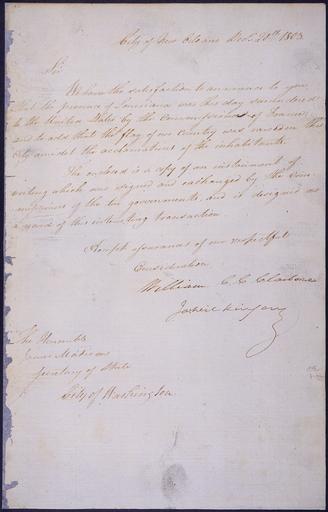 City of New Orleans Dec. 20th 1803
Sir
We have the satisfaction to announce to you,
that the province of Louisiana was this day surrendered
to the United States by the Commissioner of France;
and to add that the flag of our Country was raised in this
city amidst the acclamations of the inhabitants.
The enclosed is a copy of an instrument of
writing which was signed and exchanged by the Com-
missioners of the two governments, and is designed as
a record of this interesting transaction.
Accept assurances of our respectful
Consideration
William C. C. Claiborne
The Honorable
James Madison
Secretary of State
City of Washington